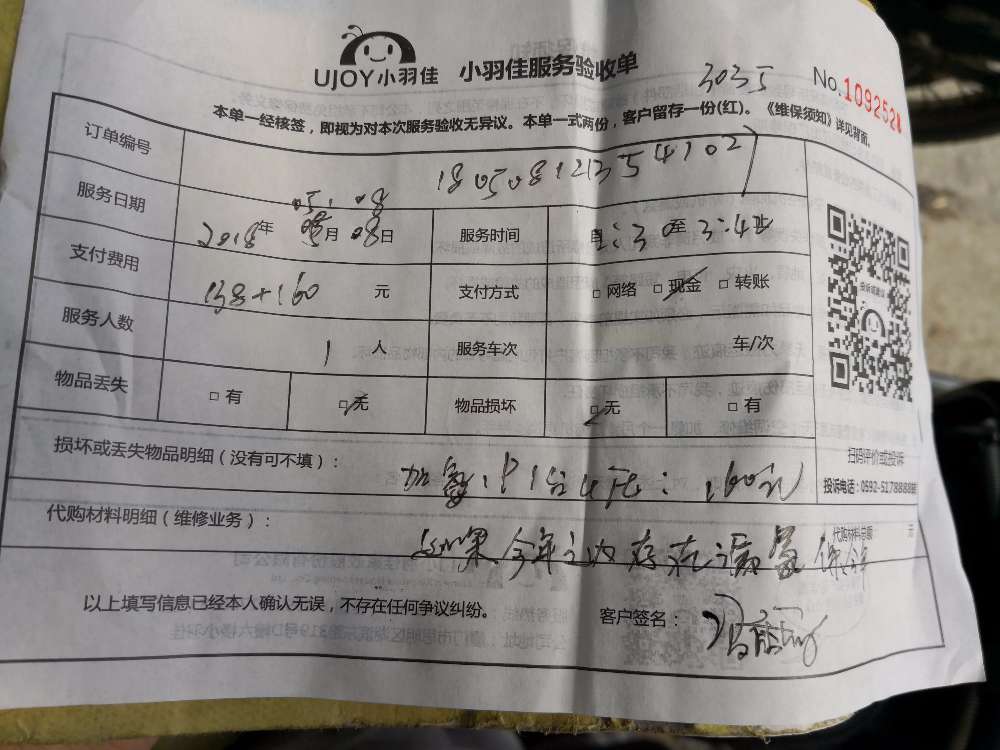 UJOY小羽佳 小羽佳服务验收单
3035 No.109252
本单一经核签，即视为对本次服务验收无异议。本单一式两份，客户留存一份(红)。《维保须知》详见背面。
订单编号 1805081213541027
05.08
服务日期 2018年 月08日 服务时间 :30至3:4
支付费用 138+160 元 支付方式 □网络 □现金 □转账
服务人数 1人 服务车次 车/次
物品丢失 □有 □无 物品损坏 □无 □有
扫码评价或投诉
损坏或丢失物品明细（没有可不填）： 160元
投诉电话：0592-5178888
代购材料明细（维修业务）： 代购材料总额 元
如果今年之内存在漏氟保修
以上填写信息已经本人确认无误，不存在任何争议纠纷。 客户签名：